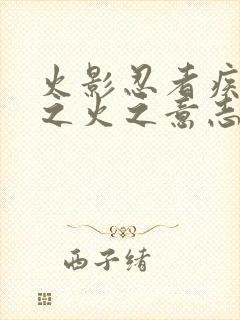 火影忍者疾
之火之意志
西子绪